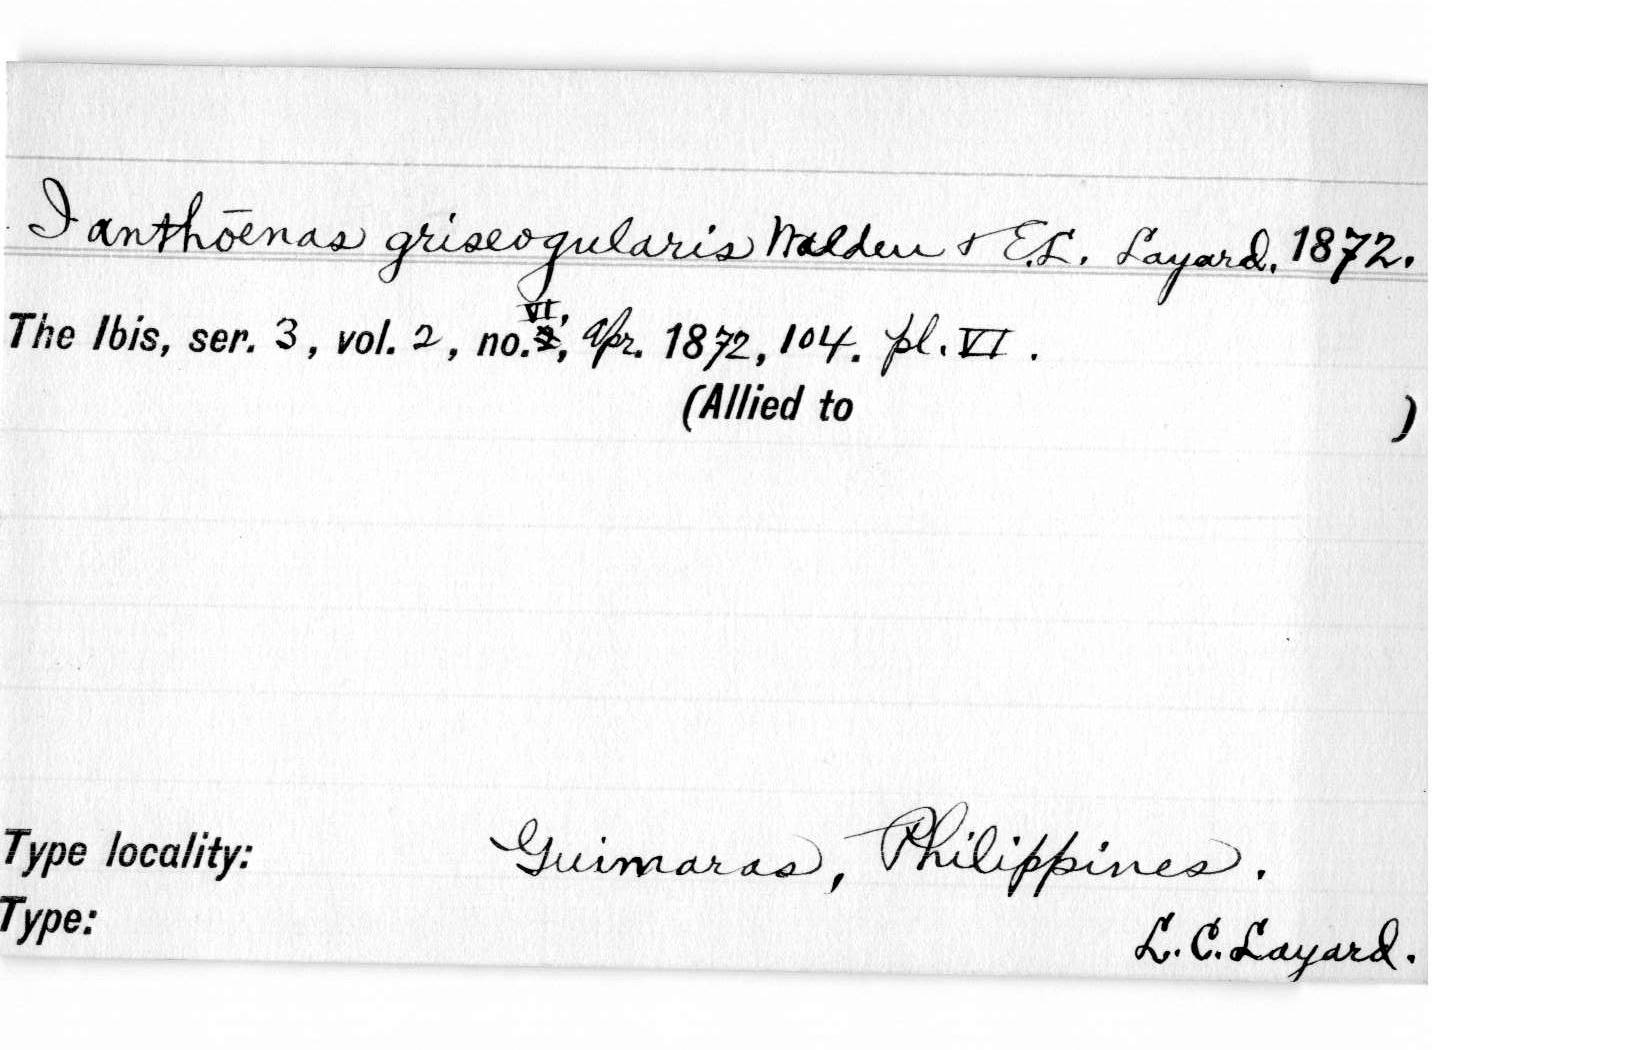 Ianthōenas griseogularis Walden & E.L. Layard. 1872.
The Ibis, ser. 3, vol. 2, no. VI, Apr. 1872, 104. pl. VI.
(Allied to )
Type locality: Guimaras, Philippines.
Type:
L.C. Layard.